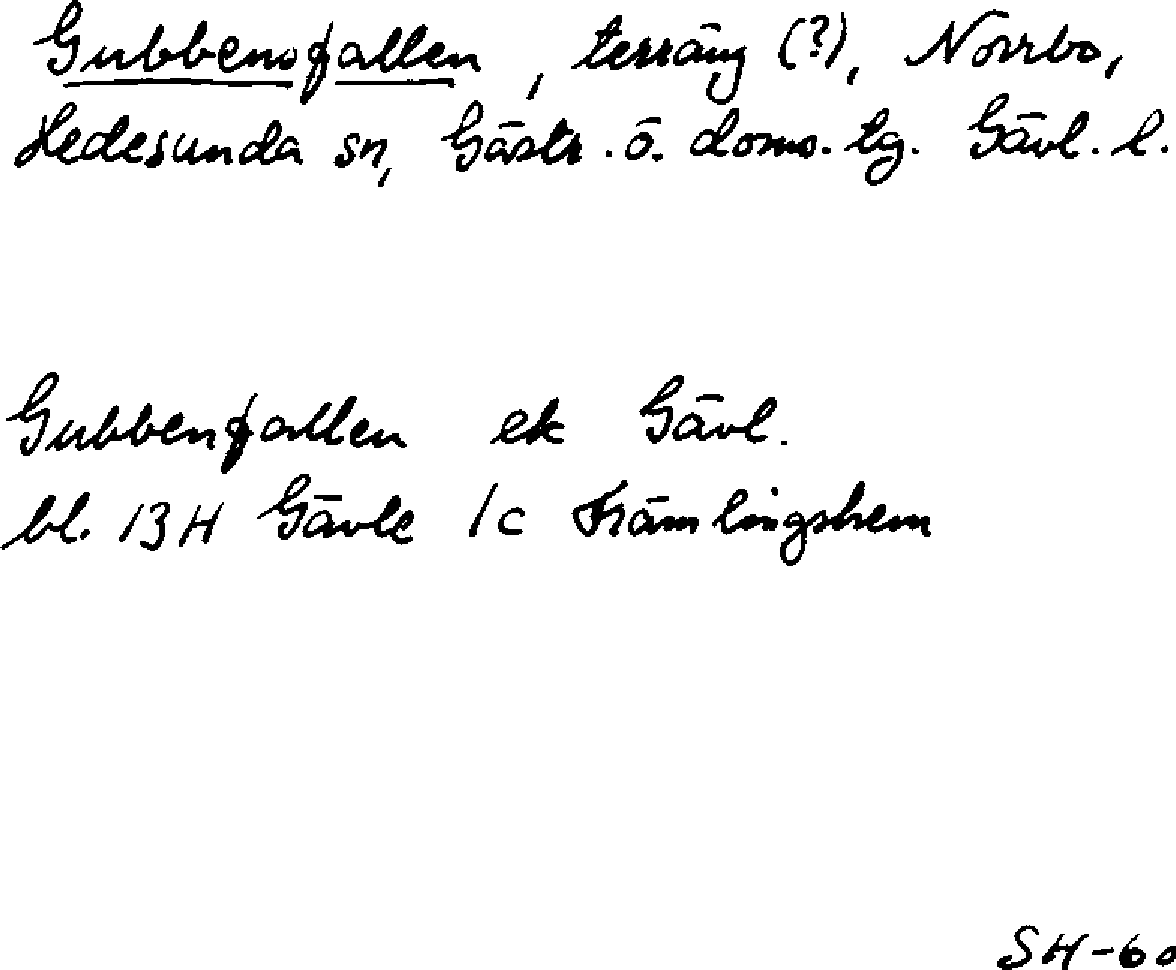 Gubbensfallen, terräng (?), Norrbo,
Hedesunda sn, Gästr. ö. doms. tg. Gävl. l.
Gubbenfallen ek Gävl.
bl. 13H Gävle 1c Främlingshem
SH-60